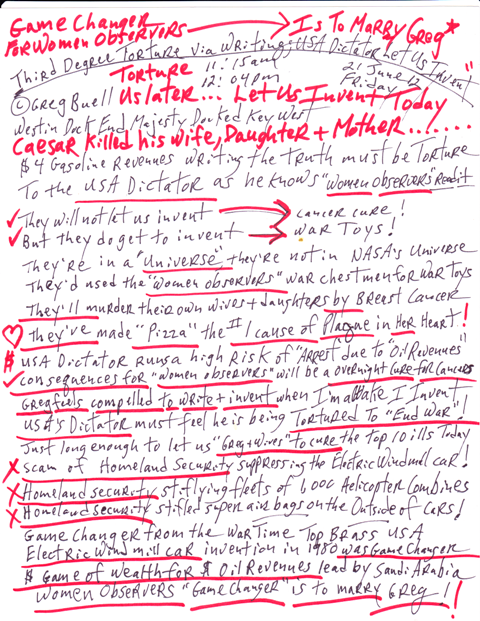 Game Changer
For Women Observers → Is To Marry Greg*
Third Degree Torture via Writing; USA Dictator Let Us Invent"
Torture 11:15 am 21 June 12
12:04 pm Friday
© Greg Buell Us later... Let Us Invent Today
Westin Dock End Majesty Docked Key West
Caesar Killed his Wife, Daughter + Mother.......
$4 Gasoline Revenues writing the truth must be Torture
To the USA Dictator as he knows "Women observers" Read it
✓ They will not let us invent → cancer cure!
✓ But they do get to invent → War Toys!
They're in a "Universe" they're not in NASA's Universe
They'd used the "Women observers" war chest men for war toys
They'll murder their own wives + daughters by Breast Cancer
♡ They've made "Pizza" the #1 cause of Plague in Her Heart!
$ USA Dictator runs a high Risk of "Arrest due to "Oil Revenues"
✓ consequences for "Women observers" will be a overnight Cure for Cancers
Greg feels compelled to write + invent when I'm awake I Invent
USA's Dictator must feel he is being Tortured To "End War"!
Just long enough to let us "Greg + Wives" to cure the top 10 ills Today
X scam of Homeland Security suppressing the Electric Windmill car!
X Homeland security stiflying fleets of 1,000 Helicopter Combines
X Homeland security stifled super air bags on the Outside of Cars!
Game Changer from the War Time Top Brass USA
Electric Wind mill car invention in 1980 was Game Changer
$ Game of Wealth for $ Oil Revenues lead by Saudi Arabia
Women Observers "Game Changer" is to marry Greg!!